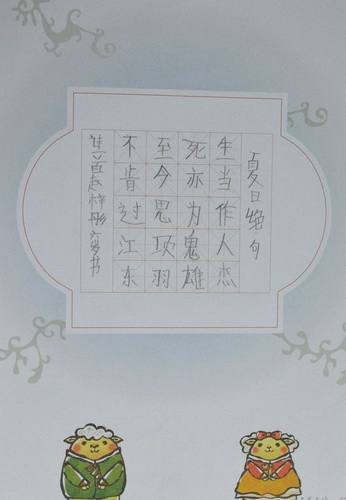 夏日绝句
生当作人杰
死亦为鬼雄
至今思项羽
不肯过江东
赵梓彤六岁书